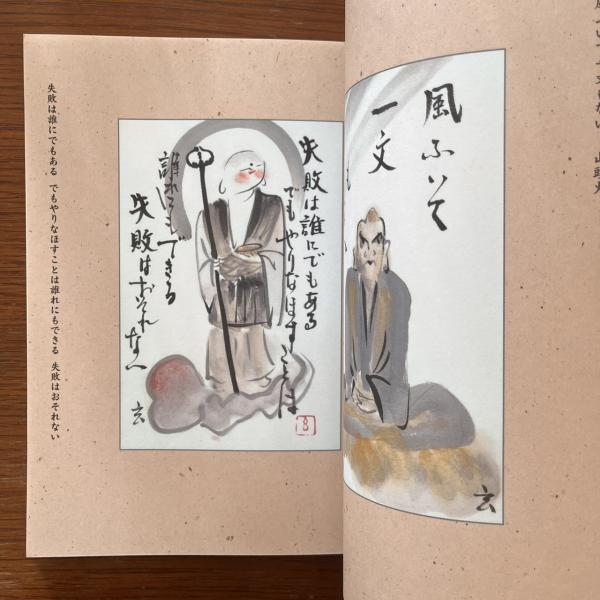 失敗は誰にでもある でもやりなほすことは誰れにもできる 失敗はおそれない
失敗は誰にでもある
でもやりなほすことは
誰れにもできる
失敗はおそれ
ない
玄
49
風ふいて
一文
玄